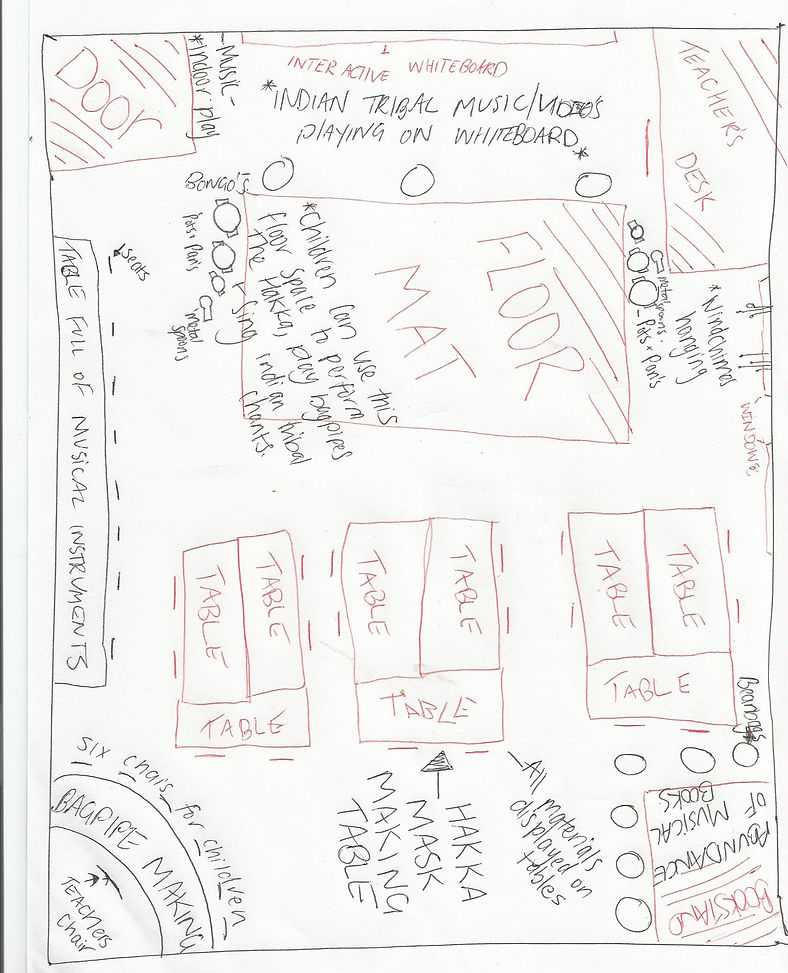 DOOR
-Music-
*Indoor play
INTERACTIVE WHITEBOARD
*INDIAN TRIBAL MUSIC/VIDEO'S
PLAYING ON WHITEBOARD*
TEACHER'S
DESK
Bongo's.
Pots + Pan's
metal
spoons
*Children can use this
floor space to perform
the Hakka, play bagpipes
+ sing indian tribal
chants.
FLOOR
MAT
metal
spoons.
- Pots + Pan's
*Windchimes
hanging
WINDOWS,
seats
TABLE FULL OF MUSICAL INSTRUMENTS
TABLE
TABLE
TABLE
TABLE
TABLE
TABLE
TABLE
TABLE
TABLE
Beanbags
six chairs for children
BAGPIPE MAKING
TEACHERS
chair
HAKKA
MASK
MAKING
TABLE
All materials
displayed on
tables
BOOKSTAND
ABUNDANCE
OF MUSICAL
BOOKS